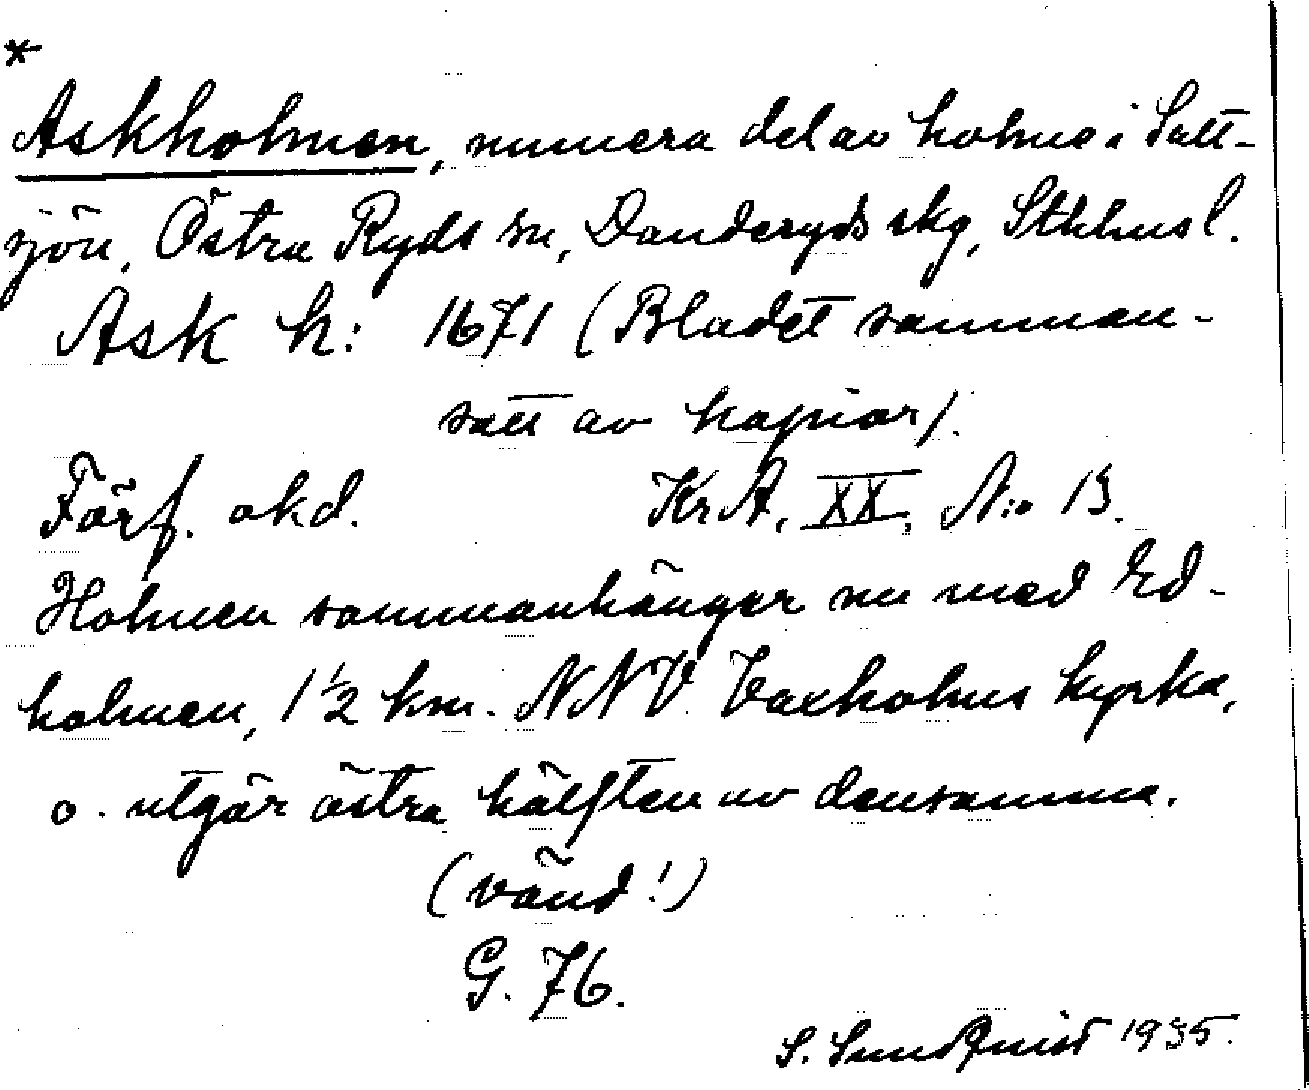 *
Askholmen, numera del av holme i Salt-
sjön, Östra Ryds sn, Danderyds skg, Sthlms l.
Ask h: 1671 (Bladet samman-
satt av kopior).
Förf. okd. KrA, XX, N:o 13.
Holmen sammanhänger nu med Ed-
holmen, 1 1/2 km. NNV. Vaxholms kyrka,
o. utgör östra hälften av densamma.
(vänd!)
G. 76.
S. Sundquist 1935.